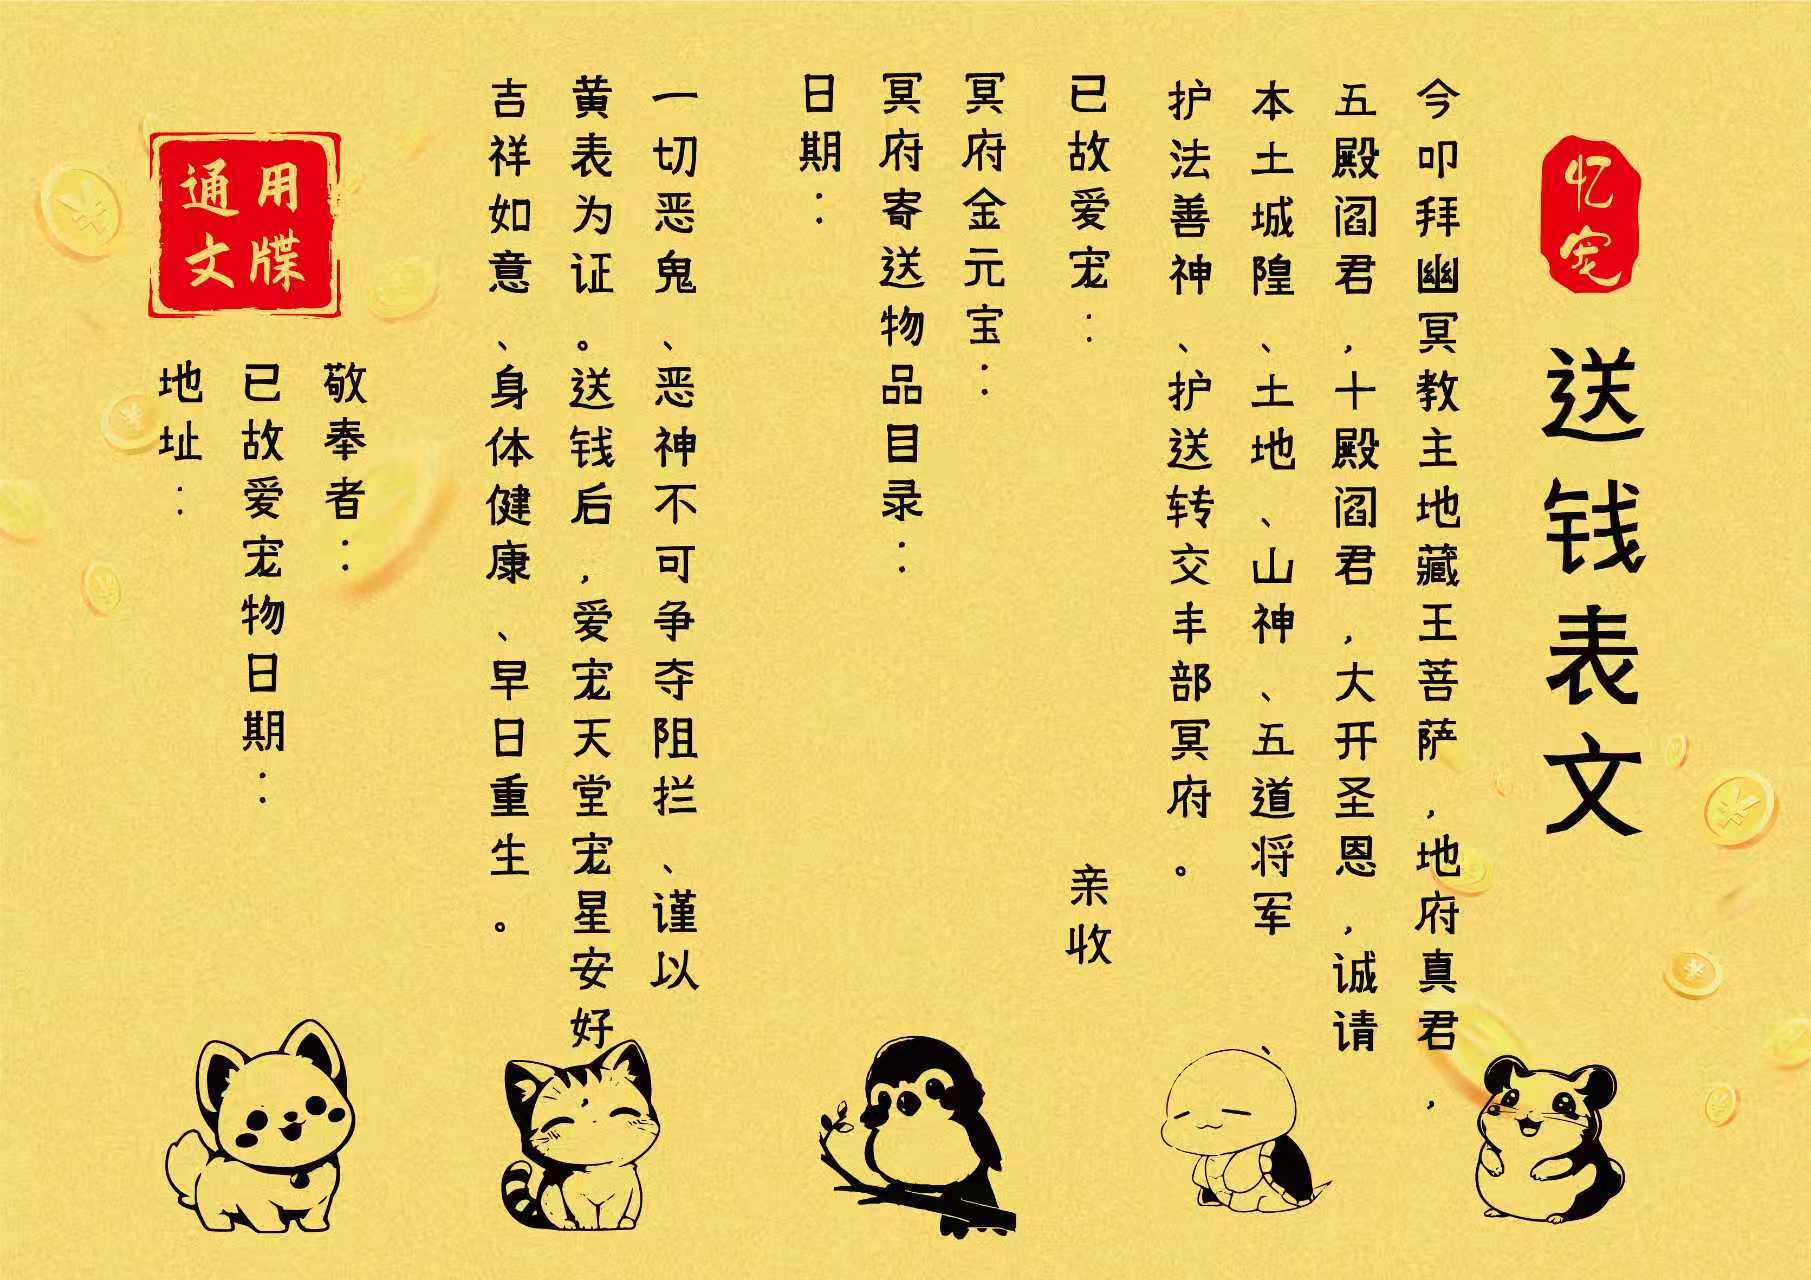 忆宠
送钱表文
今叩拜幽冥教主地藏王菩萨,地府真君,
五殿阎君,十殿阎君,大开圣恩,诚请
本土城隍、土地、山神、五道将军、
护法善神、护送转交丰部冥府。
已故爱宠: 亲收
冥府金元宝:
冥府寄送物品目录:
日期:
一切恶鬼、恶神不可争夺阻拦、谨以
黄表为证。送钱后,爱宠天堂宠星安好,
吉祥如意、身体健康、早日重生。
敬奉者:
已故爱宠物日期:
地址:
通用
文牒